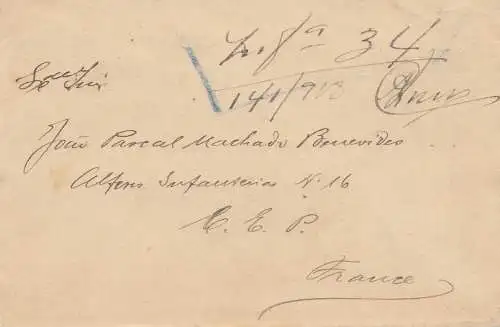 Inf.ª 34
141/918
Exmo Snr
João Pascal Machado Benevides
Alferes Infanteria N. 16
C. E. P.
France